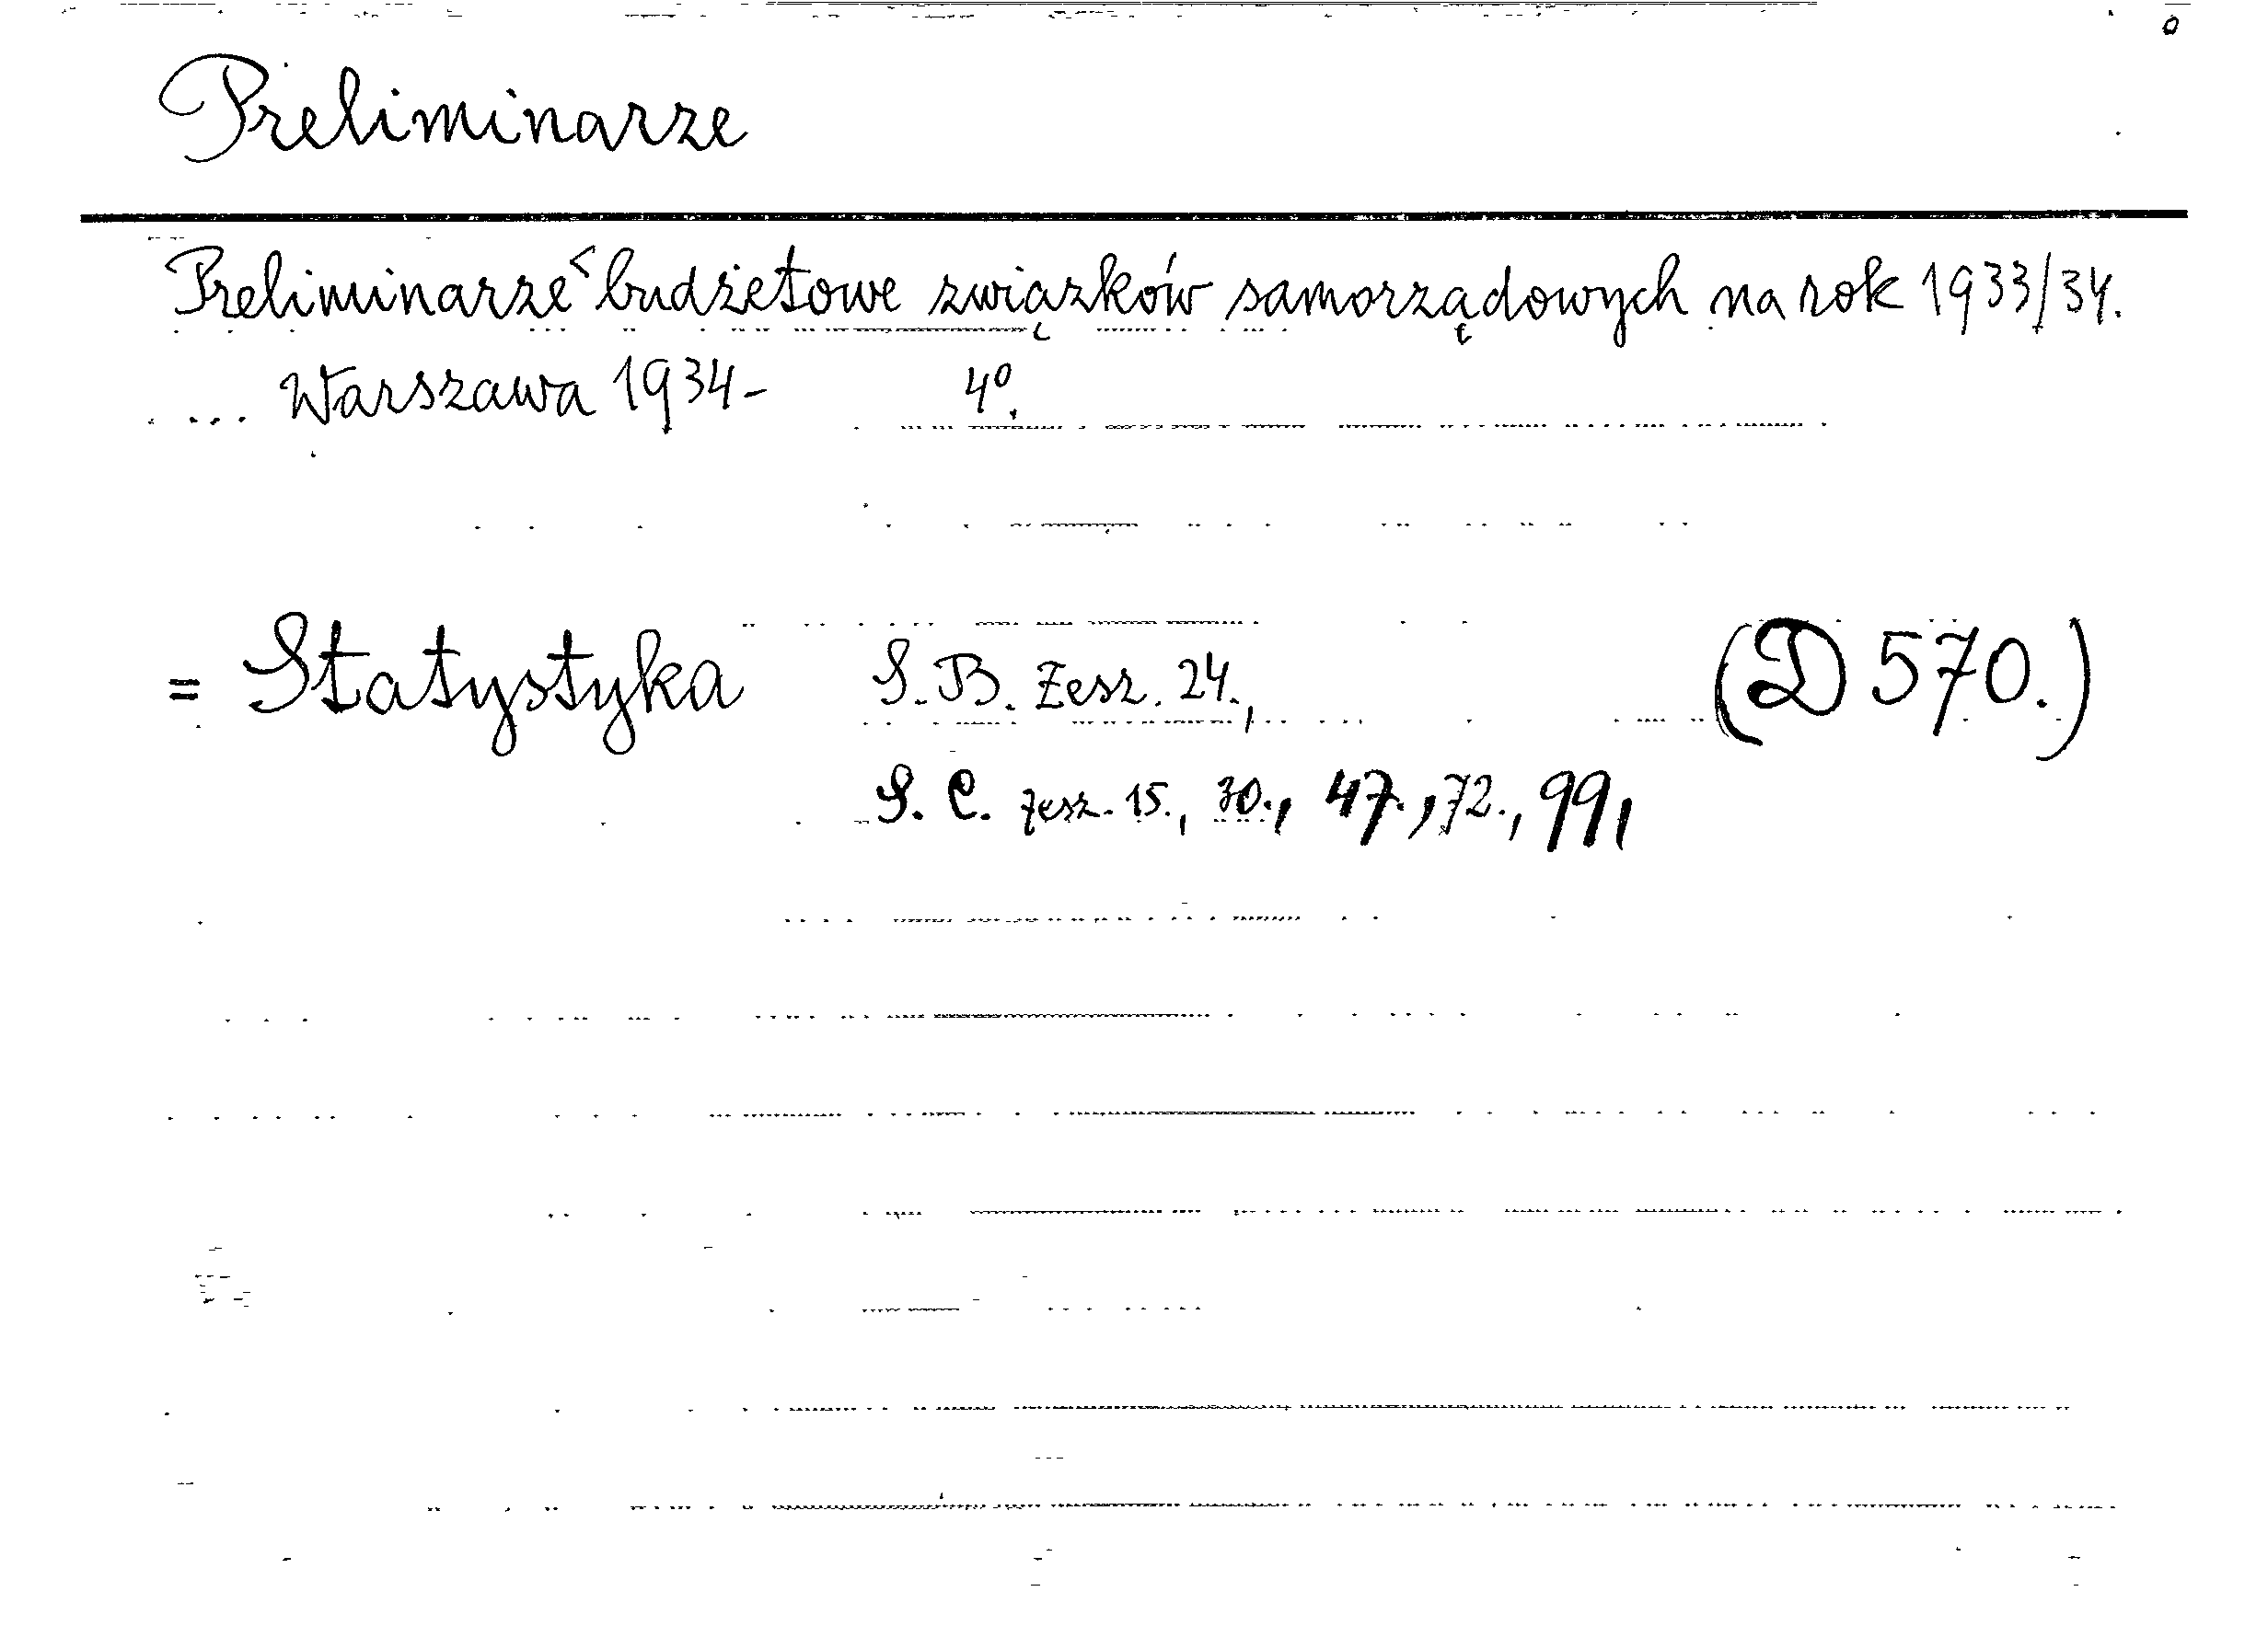 Preliminarze
Preliminarze budżetowe związków samorządowych na rok 1933/34.
.... Warszawa 1934- 4⁰.
= Statystyka S. B. Zesz. 24., (D 570.)
S. C. zesz. 15., 30., 47., 72., 99,